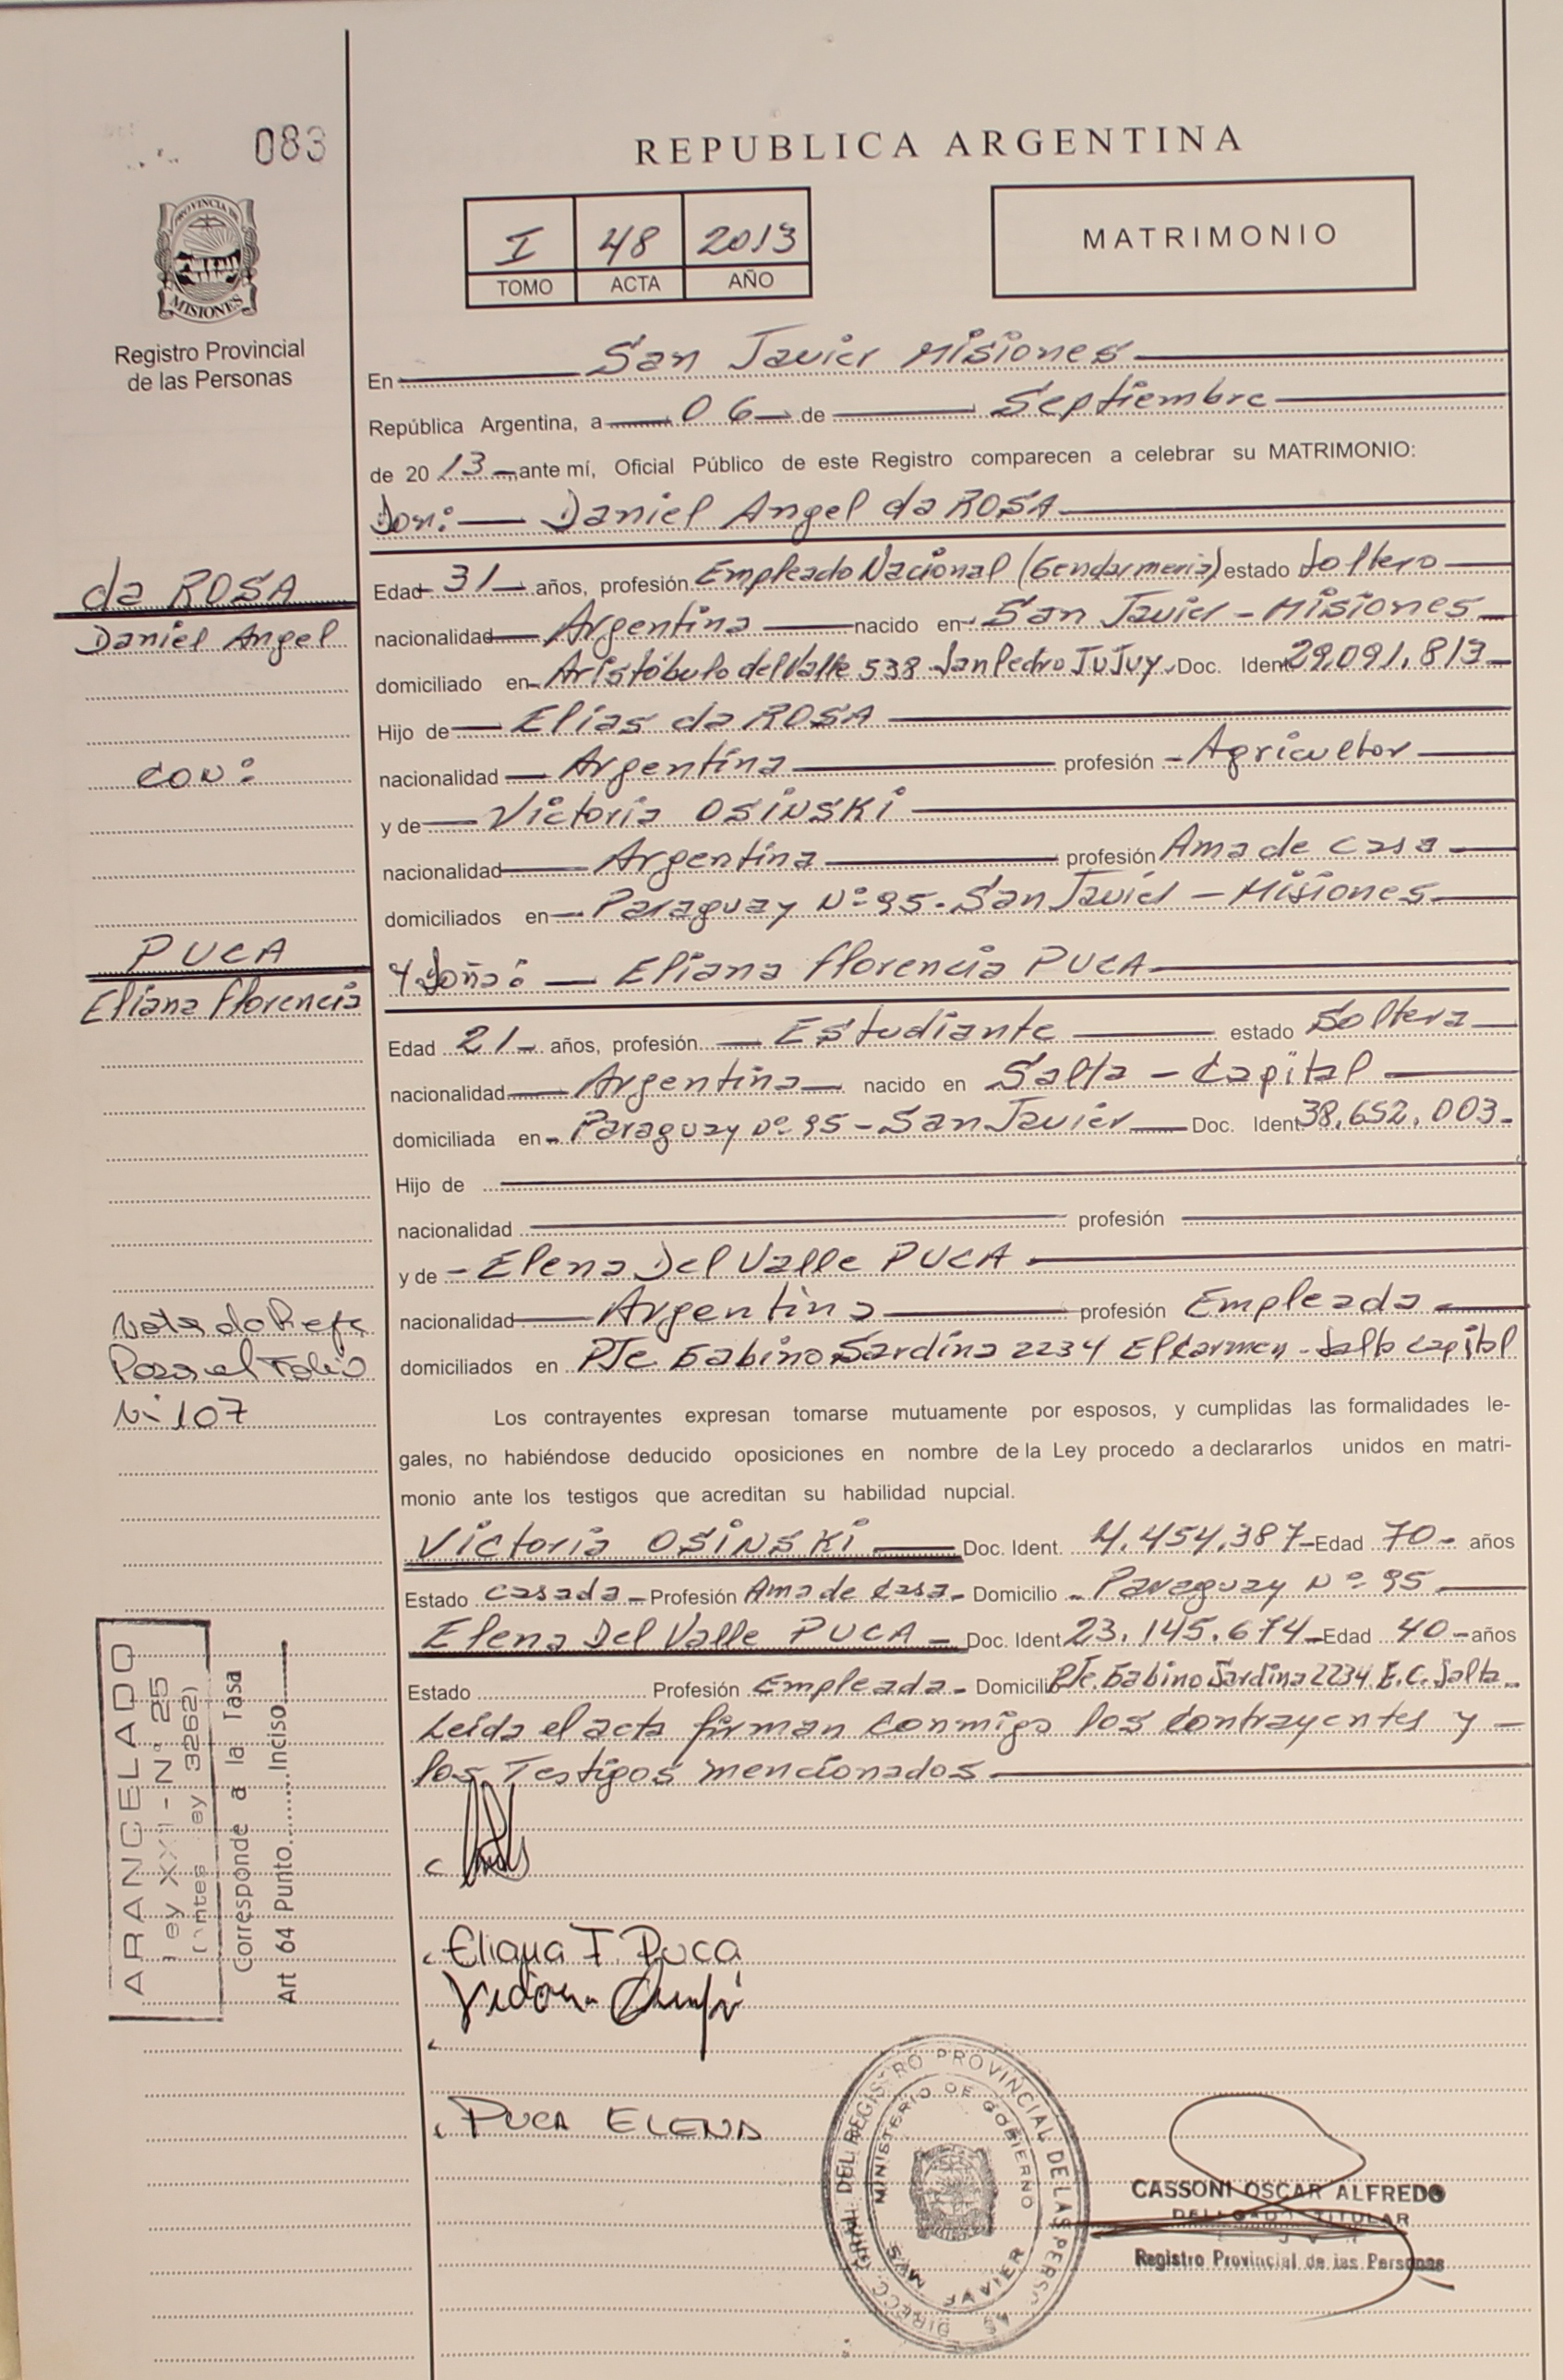 083
REPUBLICA ARGENTINA
I 48 2013
TOMO ACTA AÑO
MATRIMONIO
PROVINCIA DE
MISIONES
Registro Provincial
de las Personas
En San Javier Misiones
República Argentina, a 06 de Septiembre
de 2013 ante mí, Oficial Público de este Registro comparecen a celebrar su MATRIMONIO:
Don: Daniel Angel da ROSA
da ROSA
Daniel Angel
con:
PUCA
Eliana Florencia
Edad 31 años, profesión Empleado Nacional (Gendarmeria) estado Soltero
nacionalidad Argentina nacido en San Javier - Misiones
domiciliado en Aristóbulo del Valle 538 San Pedro JuJuy Doc. Ident 29.091.813
Hijo de Elias da ROSA
nacionalidad Argentina profesión Agricultor
y de Victoria OSINSKI
nacionalidad Argentina profesión Ama de casa
domiciliados en Paraguay Nº 95 - San Javier - Misiones
Y Doña: Eliana Florencia PUCA
Edad 21 años, profesión Estudiante estado Soltera
nacionalidad Argentina nacido en Salta - Capital
domiciliada en Paraguay Nº 95 - San Javier Doc. Ident 38.652.003
Hijo de
nacionalidad profesión
y de Elena Del Valle PUCA
nacionalidad Argentina profesión Empleada
domiciliados en PJe Gabino Sardina 2234 El Carmen - Salta Capital
Nota de Refe
Pasa al Folio
Nº 107
Los contrayentes expresan tomarse mutuamente por esposos, y cumplidas las formalidades le-
gales, no habiéndose deducido oposiciones en nombre de la Ley procedo a declararlos unidos en matri-
monio ante los testigos que acreditan su habilidad nupcial.
Victoria OSINSKI Doc. Ident. 4.454.387 Edad 70 años
Estado casada Profesión Ama de Casa Domicilio Paraguay Nº 95
Elena Del Valle PUCA Doc. Ident 23.145.674 Edad 40 años
Estado Profesión Empleada Domicilio PJe. Gabino Sardina 2234 E.C. Salta
Leída el acta firman conmigo los contrayentes y
los Testigos mencionados
ARANCELADO
Ley XXII - Nº 25
Ley 3262)
Corresponde a la Tasa
Art 64 Punto Inciso
Eliana F. Puca
Victoria
PUCA ELENA
DIRECC. GRAL. DEL REGISTRO PROVINCIAL DE LAS PERSONAS
MINISTERIO DE GOBIERNO
SAN JAVIER
CASSONI OSCAR ALFREDO
DELEGADO TITULAR
Registro Provincial de las Personas